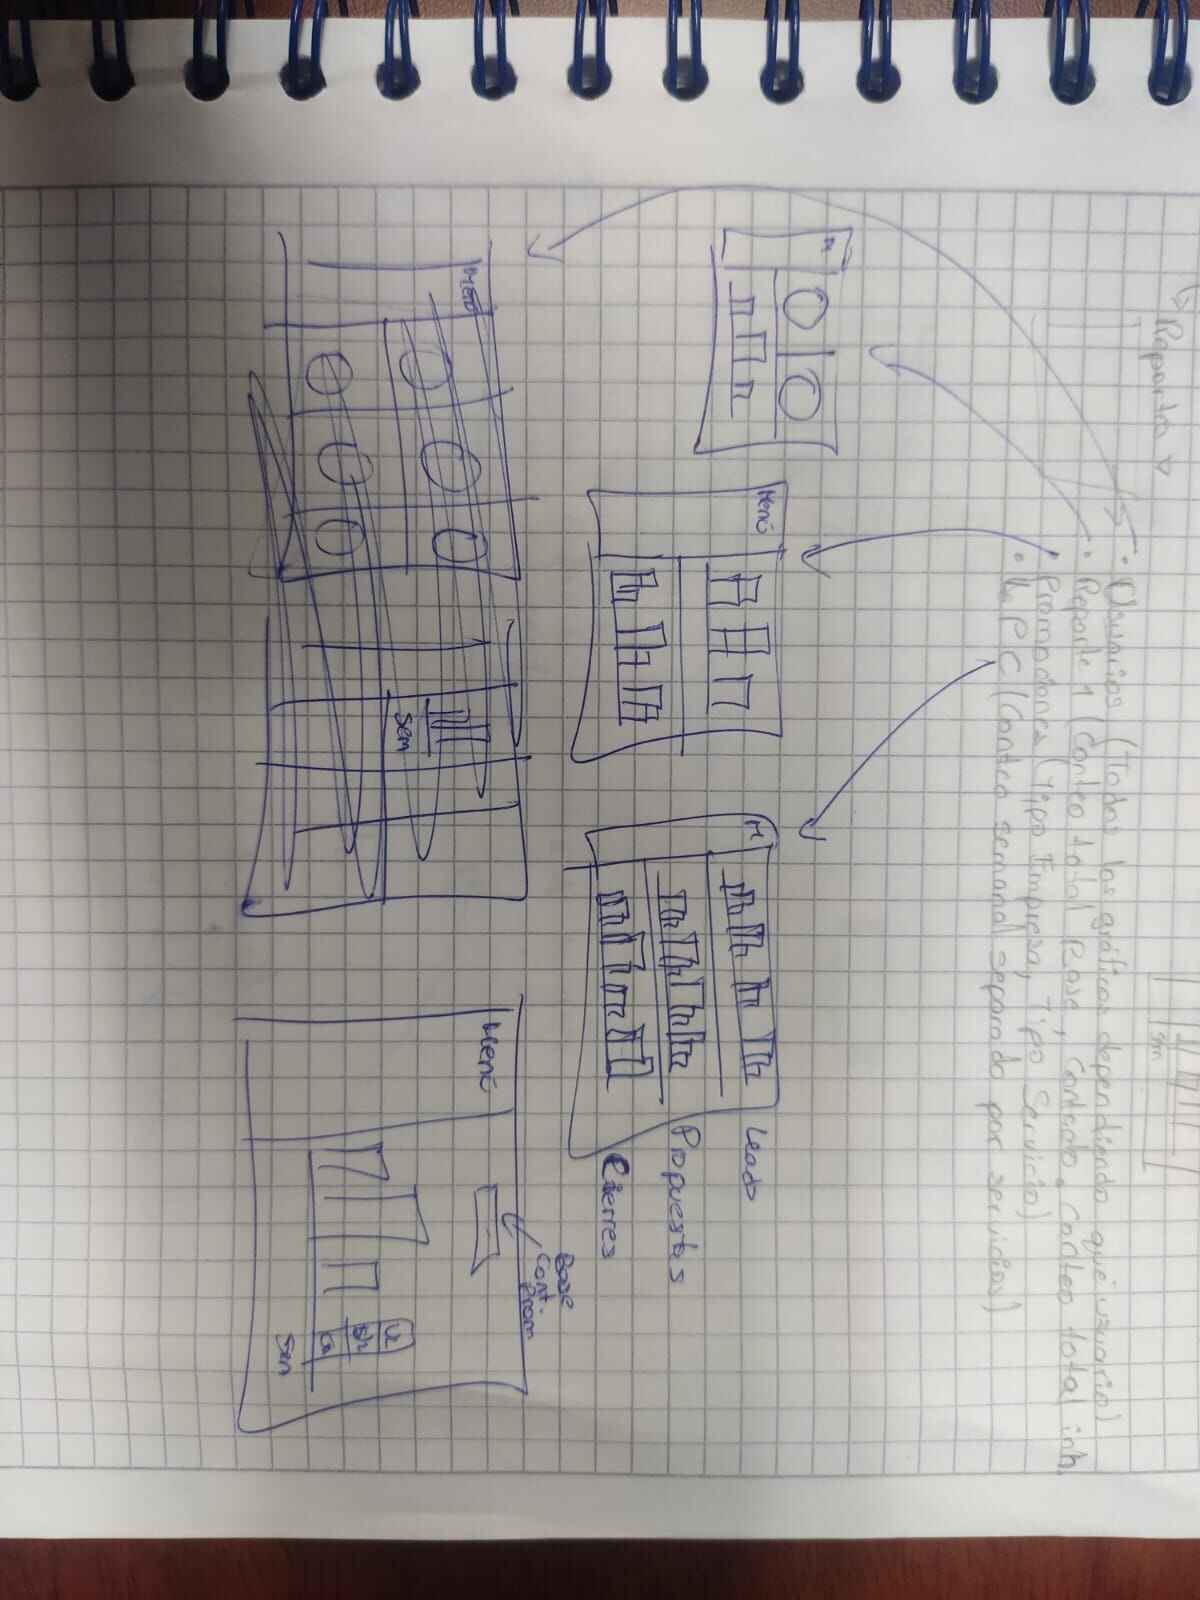 Reportes
sem
• Usuarios (Todos los gráficos dependiendo qué usuario)
• Reporte 1 (Conteo total Base, Contacto, conteo total inh
• Promociones (Tipo Empresa, Tipo Servicio)
• LPC (Conteo semanal separado por servicios)
M
Menú
M
Leads
Propuestas
Cierres
Base
Cont.
Prom
Menú
Sem
Menú
Sem